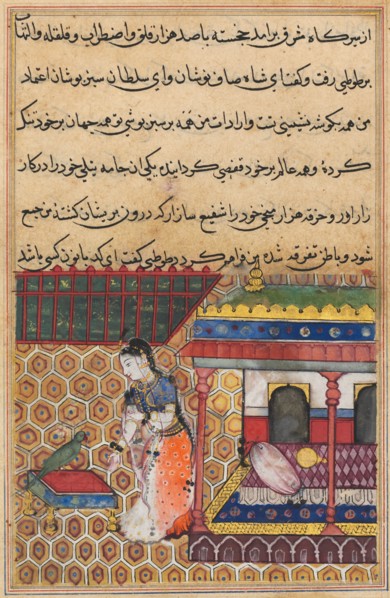 از سر کاه شرق برامد خجسته باصد هزار قلق و اضطراب و قلقله و التهاب
بر طوطی رفت و کفت ای شاه صاف نوشان و ای سلطان سبز پوشان اعتماد
من همه بکوشه نشینی تست و ارادات من همه بر سبز پوشی تو همه جهان بر خود تنک
کرده و همه عالم بر خود قفصی کردانیده یکی ان جامه نیلی خود را در کار
زار اور و خرقه هزار میخی خود را شفیع ساز ارکه درون پریشان کشته من جمع
شود و باطن تفرقه شده من فراهم کردد طوطی کفت ای کد بانو زن کسی باشد